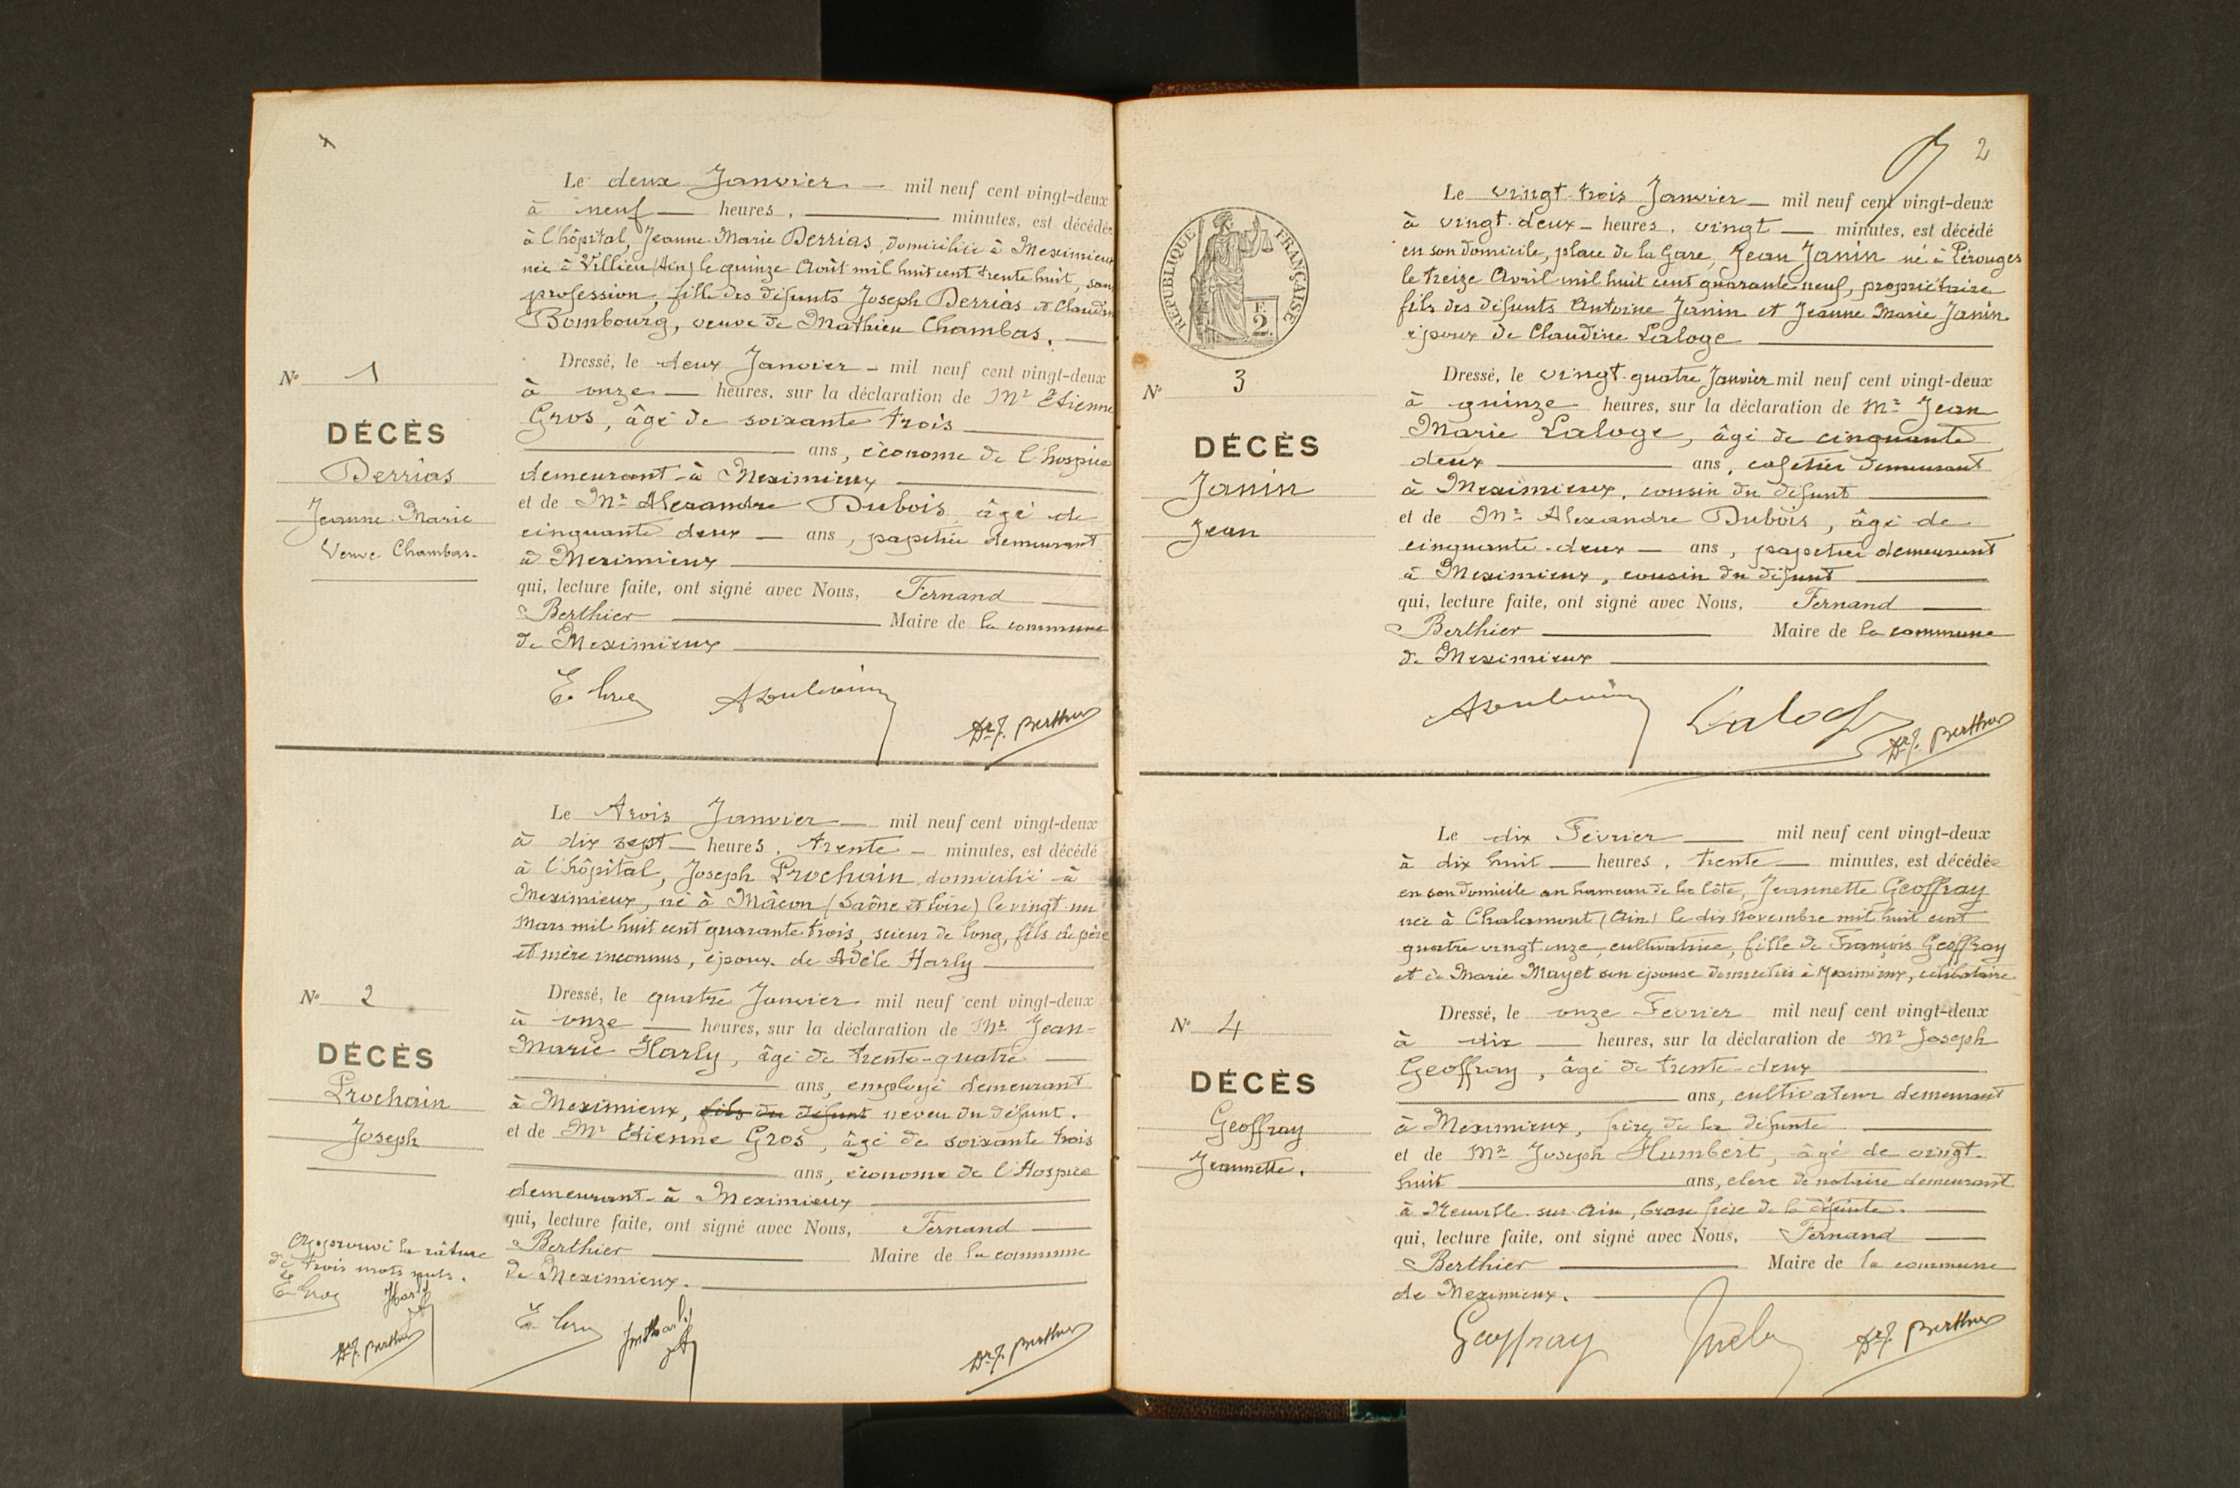 Le deux Janvier mil neuf cent vingt-deux
à neuf heures, minutes, est décédée
à l'hôpital, Jeanne-Marie Derrias, domiciliée à Meximieux
née à Villieu (Ain) le quinze Août mil huit cent trente huit, sans
profession, fille des défunts Joseph Derrias et
Bombourg, veuve de Mathieu Chambas.
Dressé, le deux Janvier mil neuf cent vingt-deux
à onze heures, sur la déclaration de Mr Etienne
Gros, âgé de soixante trois
ans, économe de l'hospice
demeurant à Meximieux
et de Mr Alexandre Dubois âgé de
cinquante deux ans, papetier demeurant
à Meximieux
qui, lecture faite, ont signé avec Nous, Fernand
Berthier Maire de la commune
de Meximieux
Dr F. Berthier
No 1
DÉCÈS
Derrias
Jeanne-Marie
Veuve Chambas.
Le trois Janvier mil neuf cent vingt-deux
à dix sept heures, trente minutes, est décédé
à l'hôpital, Joseph Prochain domicilié à
Meximieux, né à Mâcon (Saône et Loire) le vingt-un
Mars mil huit cent quarante trois, scieur de long, fils de père
et mère inconnus, époux de Adèle Harly
Dressé, le quatre Janvier mil neuf cent vingt-deux
à onze heures, sur la déclaration de Mr Jean-
Marie Harly, âgé de trente-quatre
ans, employé demeurant
à Meximieux, fils du défunt neveu du défunt.
et de Mr Etienne Gros, âgé de soixante trois
ans, économe de l'Hospice
demeurant à Meximieux
qui, lecture faite, ont signé avec Nous, Fernand
Berthier Maire de la commune
de Meximieux.
Dr F. Berthier
No 2
DÉCÈS
Prochain
Joseph
Approuvé la râture
de trois mots nuls.
E Gros
Dr F. Berthier
2
RÉPUBLIQUE FRANÇAISE
F.
2
Le vingt-trois Janvier mil neuf cent vingt-deux
à vingt-deux heures, vingt minutes, est décédé
en son domicile, place de la Gare, Jean Janin né à Pérouges
le treize Avril mil huit cent quarante neuf, propriétaire
fils des défunts Antoine Janin et Jeanne Marie Janin
époux de Claudine Laloge
Dressé, le vingt-quatre Janvier mil neuf cent vingt-deux
à quinze heures, sur la déclaration de Mr Jean
Marie Laloge, âgé de cinquante
deux ans, cafetier demeurant
à Meximieux, cousin du défunt
et de Mr Alexandre Dubois, âgé de
cinquante-deux ans, papetier demeurant
à Meximieux, cousin du défunt
qui, lecture faite, ont signé avec Nous, Fernand
Berthier Maire de la commune
de Meximieux
Laloge
Dr F. Berthier
No 3
DÉCÈS
Janin
Jean
Le dix Février mil neuf cent vingt-deux
à dix huit heures, trente minutes, est décédée
en son domicile au hameau de la Côte, Jeannette Geoffray
née à Chalamont (Ain) le dix Novembre mil huit cent
quatre vingt onze, cultivatrice, fille de François Geoffray
et de Marie Mayet son épouse domiciliés à Meximieux, célibataire
Dressé, le onze Février mil neuf cent vingt-deux
à dix heures, sur la déclaration de Mr Joseph
Geoffray, âgé de trente-deux
ans, cultivateur demeurant
à Meximieux, frère de la défunte
et de Mr Joseph Humbert, âgé de vingt-
huit ans, clerc de notaire demeurant
à Neuville-sur-Ain, beau frère de la défunte.
qui, lecture faite, ont signé avec Nous, Fernand
Berthier Maire de la commune
de Meximieux.
Geoffray
Dr F. Berthier
No 4
DÉCÈS
Geoffray
Jeannette.